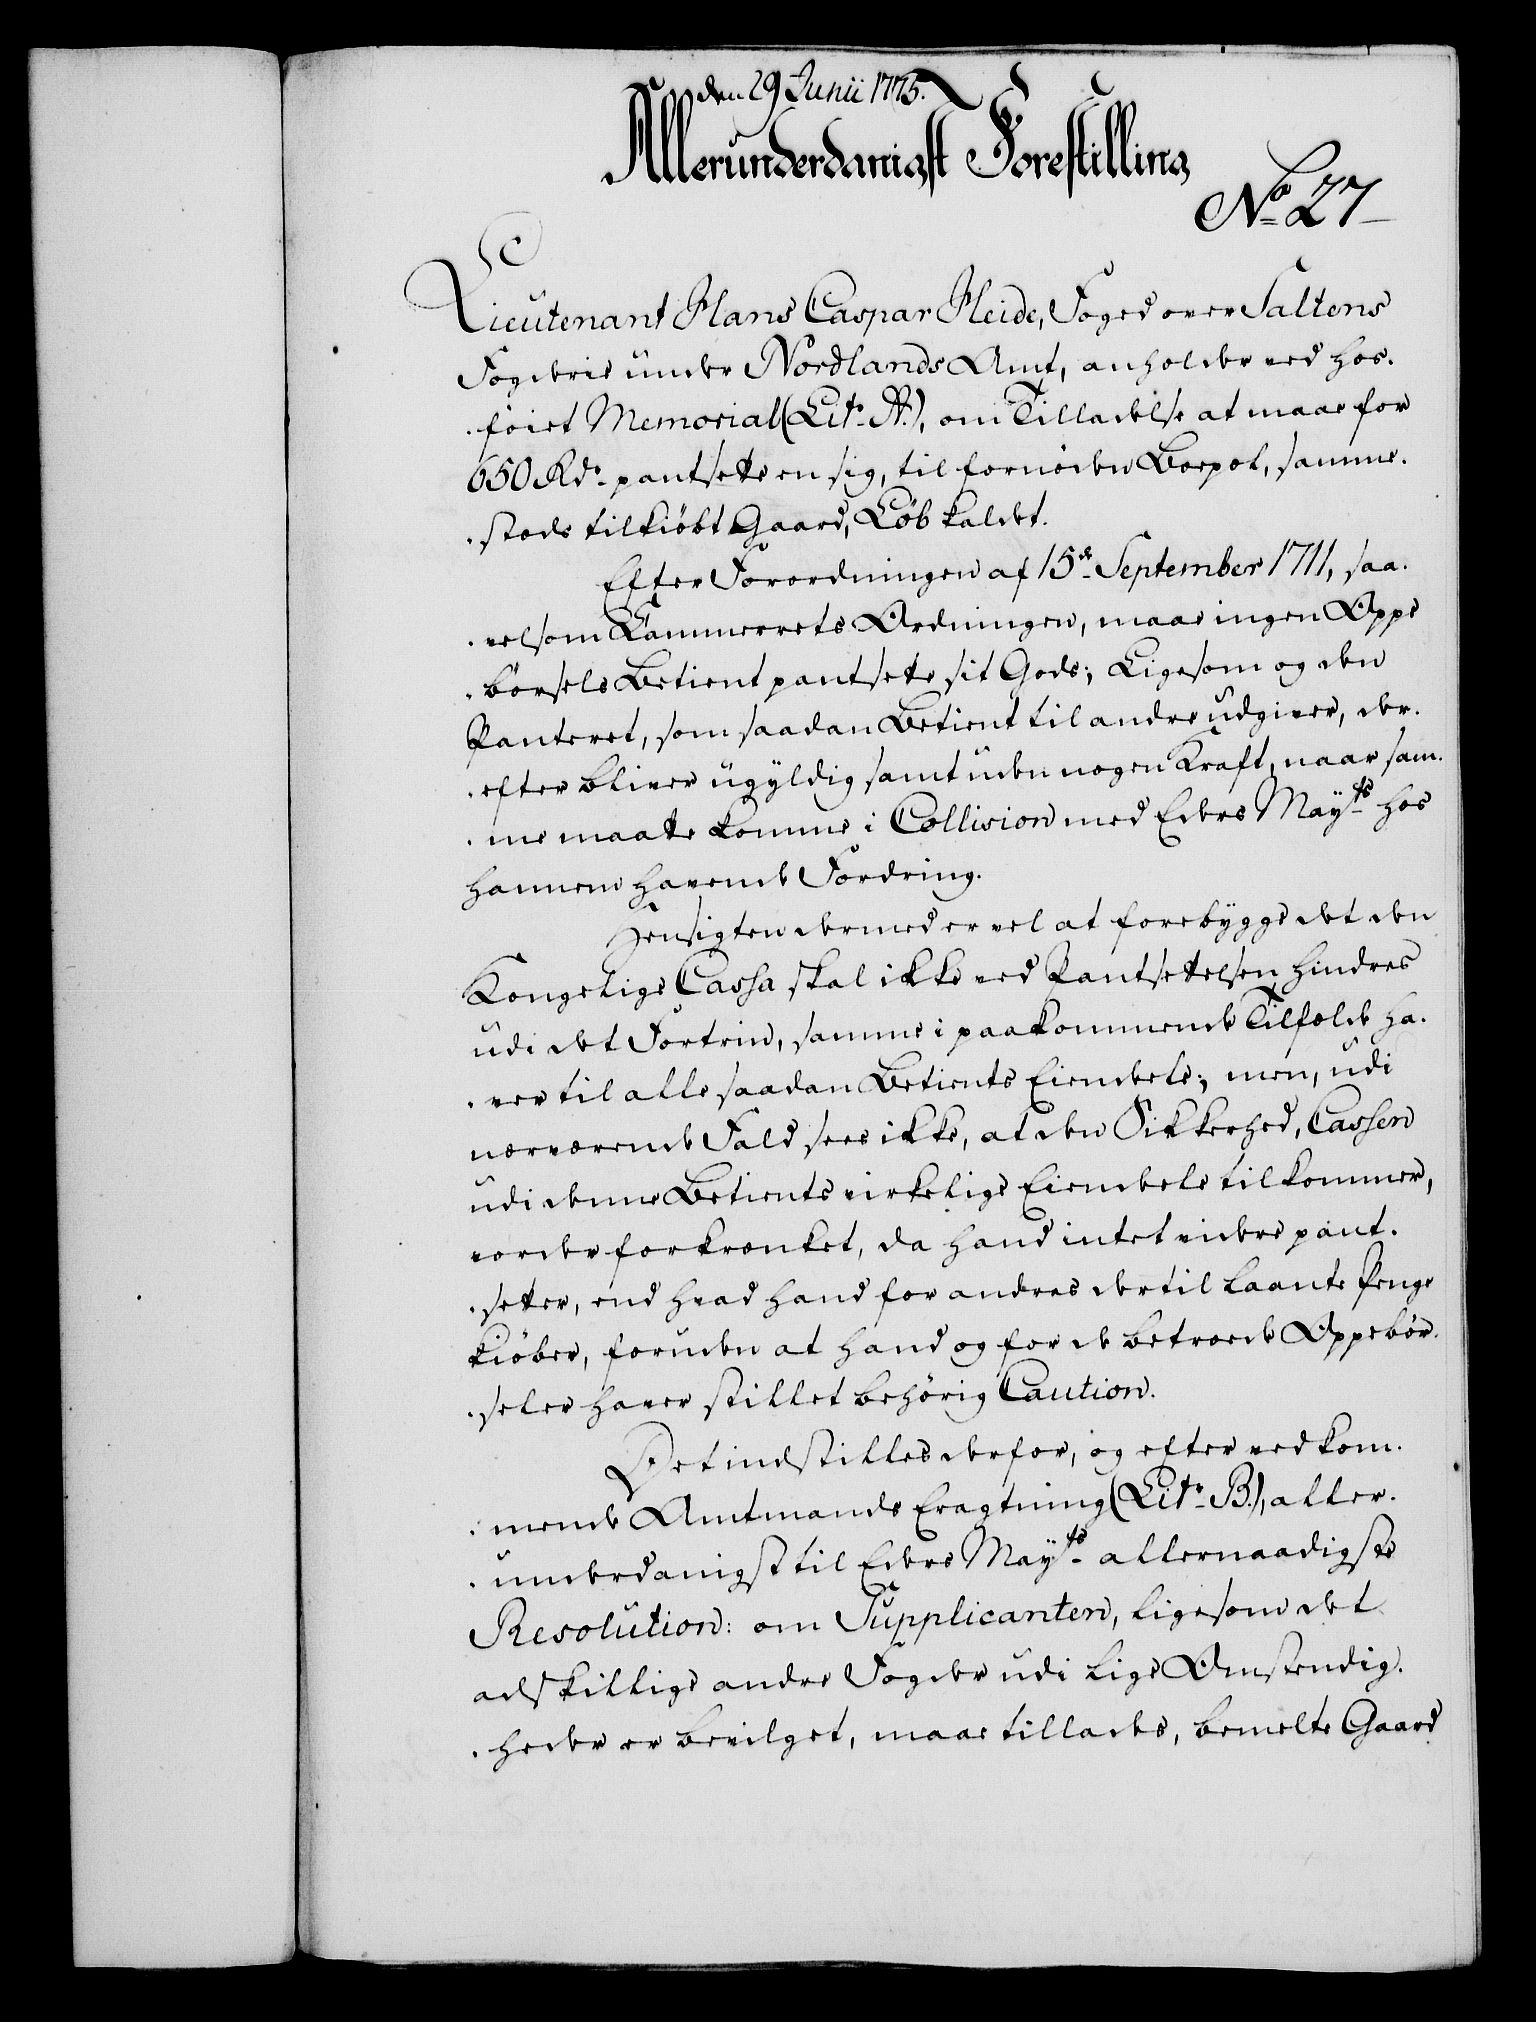 den 29 Junii 1775.
Allerunderdanigst Forestilling
No 27
Lieutenant Hans Caspar Heide, Foged over Saltens
Fogderie under Nordlands Amt, anholder ved hos-
-föiet Memorial (Lit. A.), om Tilladelse at maae for
650 Rd. pantsette en sig, til fornöden Boepæl, samme-
-steds tilkiöbt Gaard, Löb kaldet.
Efter Forordningen af 15de September 1711, saa-
-velsom Kammerrets Ordningen, maae ingen Oppe
-börsels Betient pantsette sit Gods; Ligesom og den
Panteret, som saadan Betient til andre udgiver, der-
-efter bliver ugyldig samt uden nogen Kraft, naar sam-
-me maatte komme i Collision med Eders Mayts hos
hannem havende Fordring.
Hensigten dermed er vel at forebygge det den
Kongelige Cassa skal ikke ved Pantsettelsen hindres
udi det Fortrin, samme i paakommende Tilfælde ha-
-ver til alle saadan Betients Eiendele; men, udi
nærværende Fald sees ikke, at den Sikkerhed, Cassen
udi denne Betients virkelige Eiendele tilkommer,
vorder forkrænket, da hand intet videre pant-
-setter, end hvad hand for andres dertil laante Penge
kiöber, foruden at hand og for de betroede Oppebör-
-seler haver stillet behörig Caution.
Det indstilles derfor, og efter vedkom-
-mende Amtmands Eragtning (Lit. B.), aller-
-underdanigst til Eders Mayts allernaadigste
Resolution: om Supplicanten, ligesom det
adskillige andre Fogder udi lige Omstendig-
-heder er bevilget, maae tillades, bemelte Gaard